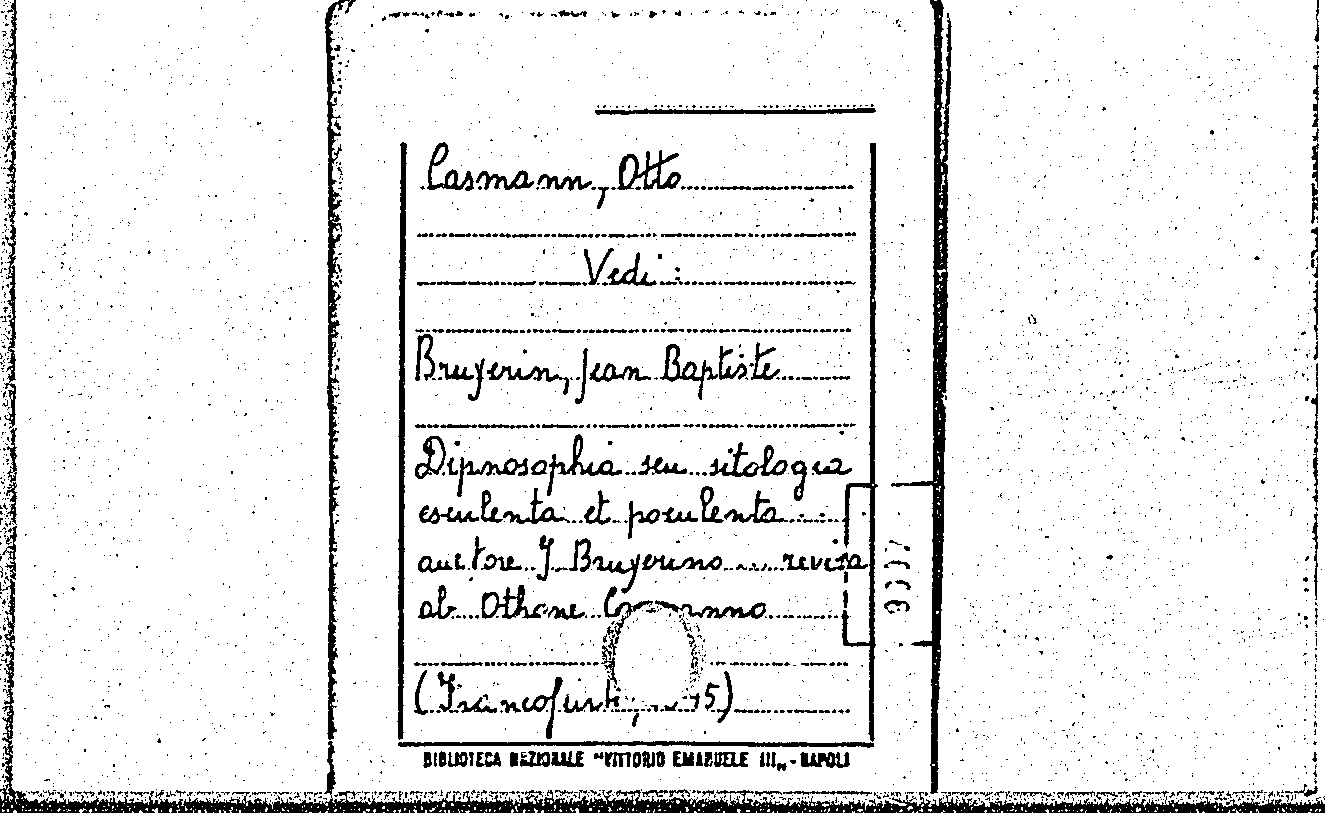 Casmann, Otto
Vedi:
Bruyerin, Jean Baptiste
Dipnosophia seu sitologia
esculenta et poculenta . .
auctore J Bruyerino .... revisa
ab Othone
(Francofurti,
BIBLIOTECA NAZIONALE "VITTORIO EMANUELE III„ - NAPOLI